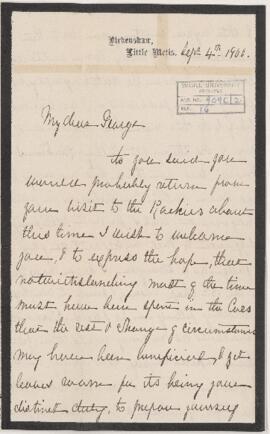 Birkenshaw,
Little Metis. Sept 4th 1900.
McGILL UNIVERSITY
ARCHIVES
ACC. NO. 909C/2/
REF. 16
My dear George
As you said you
would probably return from
your visit to the Rockies about
this time I wish to welcome
you, & to express the hope, that
notwithstanding most of the time
must have been spent in the Cars
that the rest & change of circumstances
may have been beneficial, & yet
leave room for its being your
distinct duty, to prepare yourself